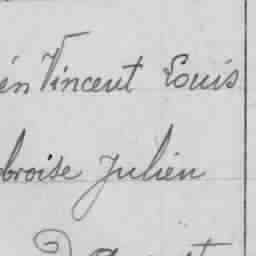 én Vincent Louis
broise Julien